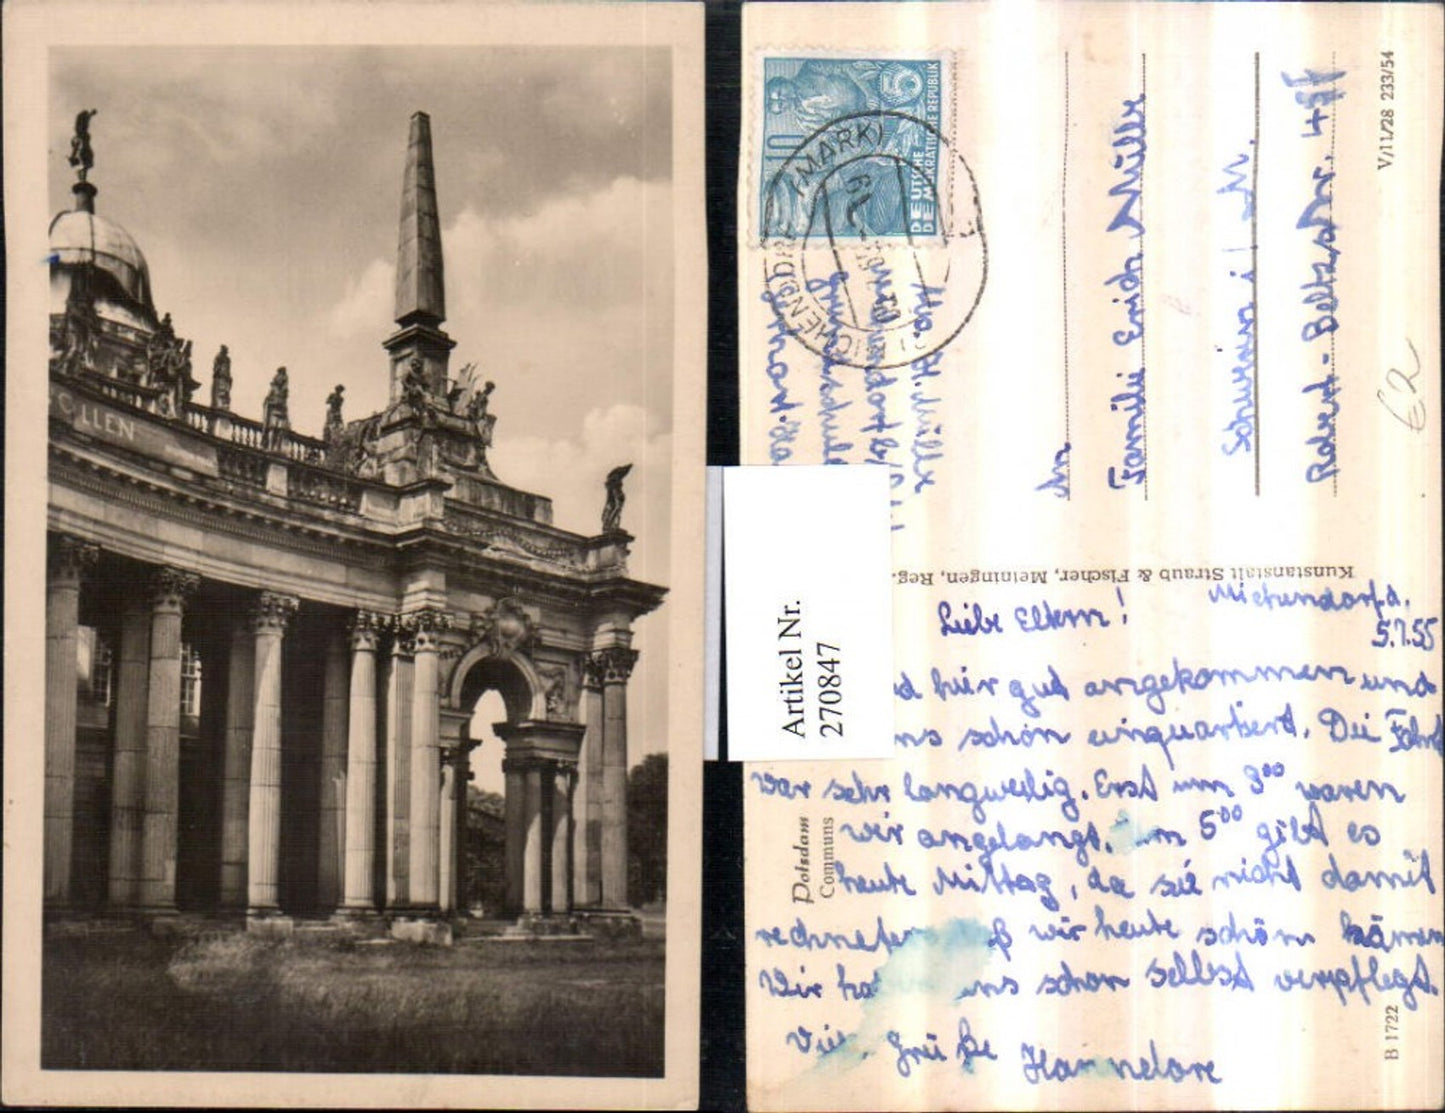 C.LLEN
10
5
DEUTSCHE
DEMOKRATISCHE REPUBLIK
(MARK)
Hannel. Müller
An
Familie Erich Müller
Schwerin i/ M.
Robert-Beltzstr. 48
V/11/28 233/54
€2
Kunstanstalt Straub & Fischer, Meiningen, Reg.
Artikel Nr.
270847
Michendorf.d.
5.7.55
Liebe Eltern!
d hier gut angekommen und
ns schön einquartiert. Die Fahrt
war sehr langweilig. Erst um 3⁰⁰ waren
wir angelangt. um 5⁰⁰ gibt es
heute Mittag, da sie nicht damit
rechneten wir heute schön kämen
Wir uns schon selbst verpflegt.
Grüße Hannelore
Potsdam
Communs
B 1722